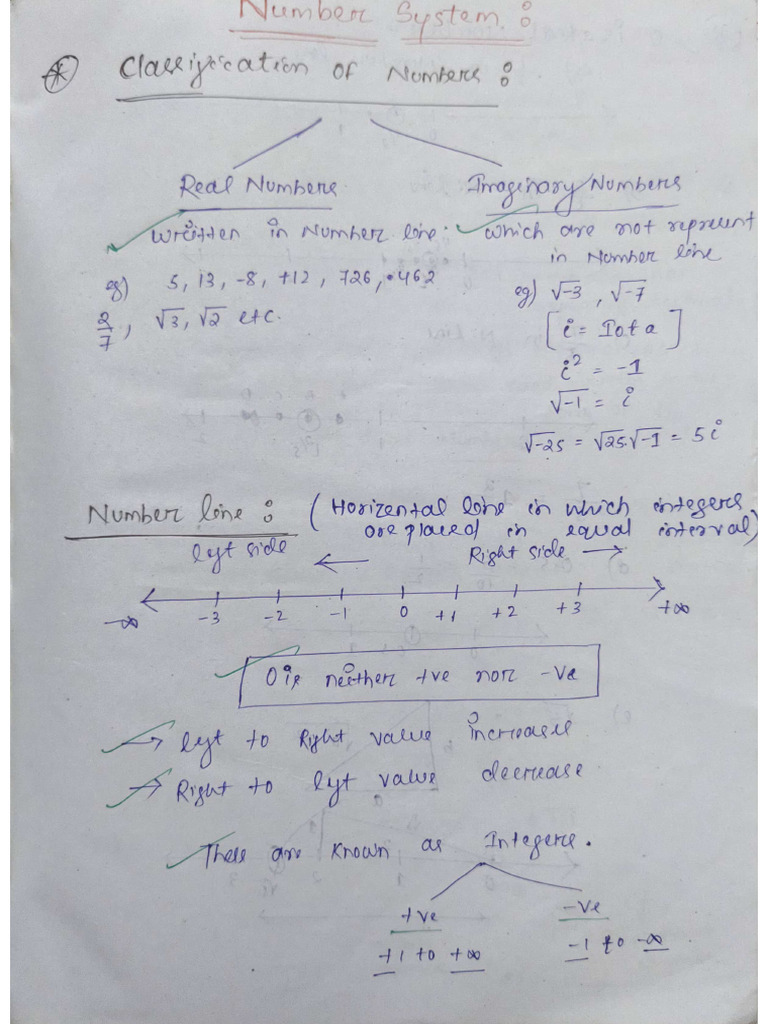 Number System :
* Classification of Numbers :
Real Numbers
Imaginary Numbers
written in Number line.
eg) 5, 13, -8, +12, 726, .462
2/7, √3, √2 etc.
which are not represent
in Number line
eg) √-3, √-7
[i = Iota]
i² = -1
√-1 = i
√-25 = √25.√-1 = 5i
Number line : (Horizental line in which integers
are placed in equal interval)
left side ← Right side →
-∞ -3 -2 -1 0 +1 +2 +3 +∞
0 is neither +ve nor -ve
→ left to Right value increase
→ Right to left value decrease
These are known as Integers.
+ve -ve
+1 to +∞ -1 to -∞